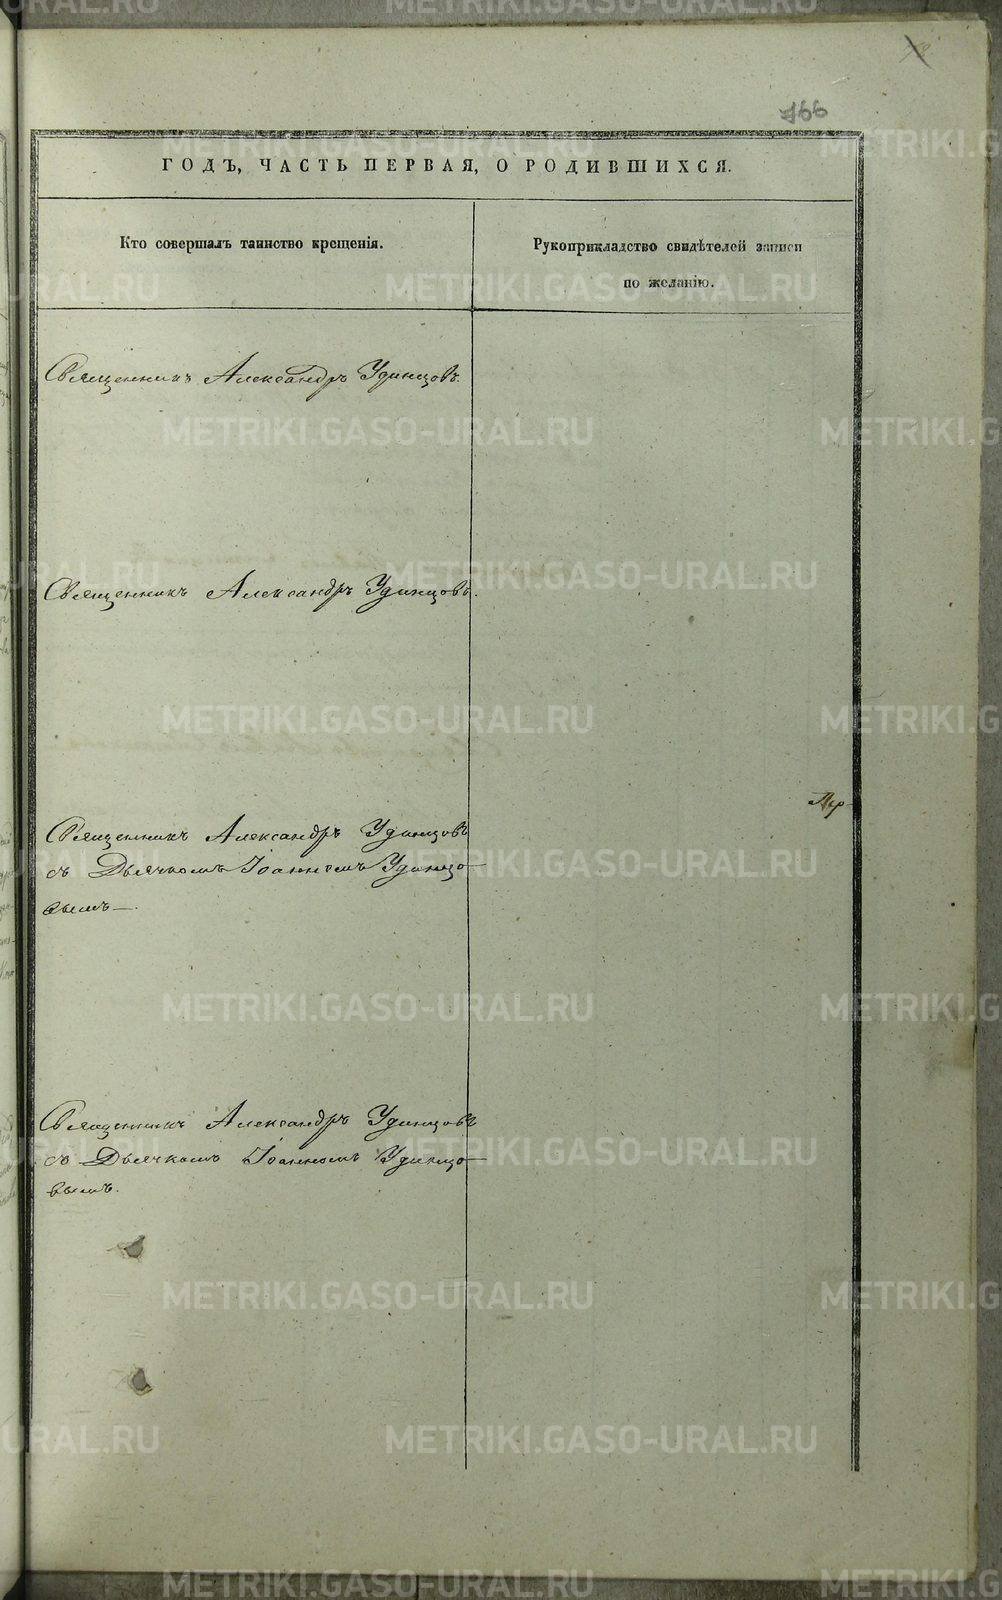 766
ГОДЪ, ЧАСТЬ ПЕРВАЯ, О РОДИВШИХСЯ.
Кто совершалъ таинство крещенія.
Рукоприкладство свидѣтелей записи
по желанію.
Священникъ Александръ Удинцовъ.
Священникъ Александръ Удинцовъ.
Священникъ Александръ Удинцовъ
съ Дьячкомъ Іоанномъ Удинцо-
вымъ.
Священникъ Александръ Удинцовъ
съ Дьячкомъ Іоанномъ Удинцо-
вымъ.
METRIKI.GASO-URAL.RU